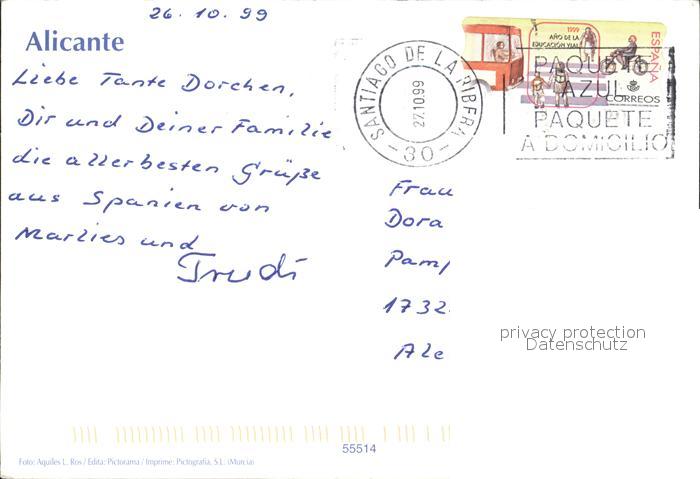 26. 10. 99
Alicante
Liebe Tante Dorchen,
Dir und Deiner Familie
die allerbesten Grüße
aus Spanien von
Marlies und
Trudi
SANTIAGO DE LA RIBERA
27.10.99
- 30 -
1999
AÑO DE LA
EDUCACIÓN VIAL
ESPAÑA
CORREOS
PAQUETE
AZUL
PAQUETE
A DOMICILIO
Frau
Dora
Pam
1732
Ale
privacy protection
Datenschutz
55514
Foto: Aquiles L. Ros / Edita: Pictorama / Imprime: Pictografía, S.L. (Murcia)